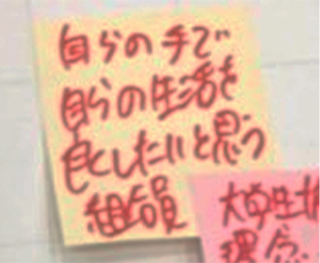 自らの手で
自らの生活を
良くしたいと思う
組合員
大学生協
理念